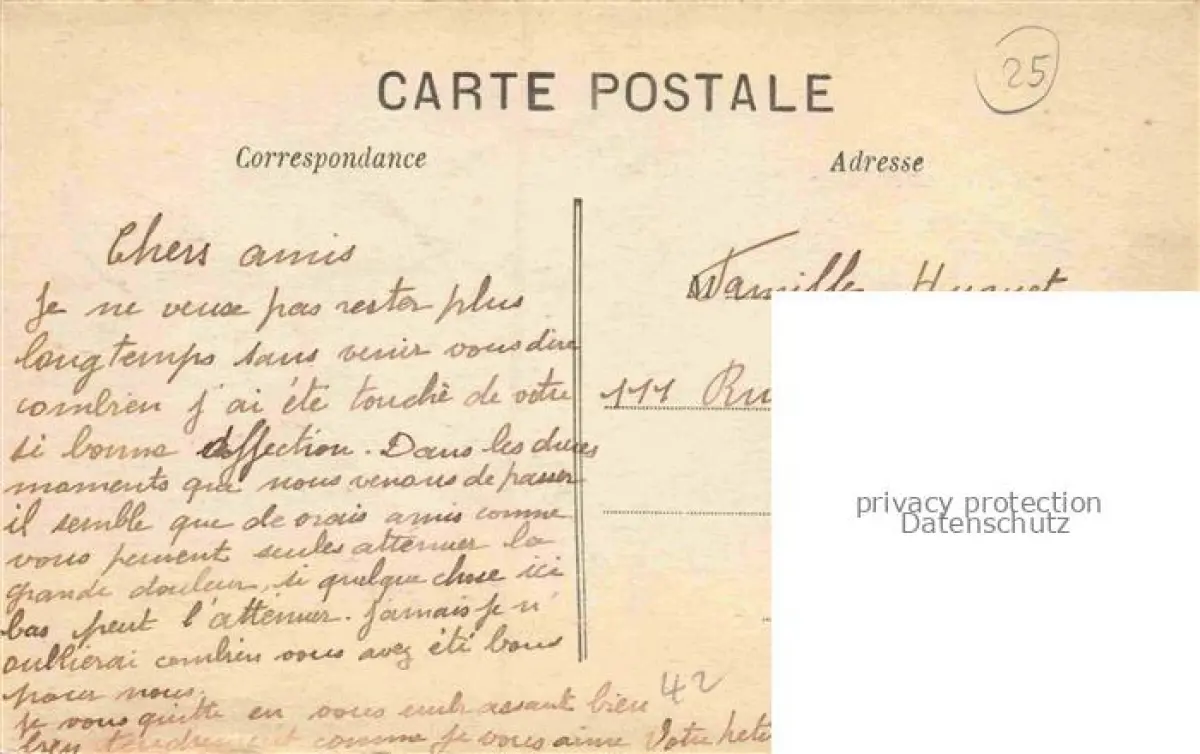 CARTE POSTALE
25
Correspondance
Adresse
Chers amis
Je ne veux pas rester plus
longtemps sans venir vous dire
combien j'ai été touché de votre
si bonne affection. Dans les dures
moments que nous venons de passer
il semble que de vrais amis comme
vous peuvent seules attenuer la
grande douleur, si quelque chose ici
bas peut l'attenuer. Jamais je n'
oublierai combien vous avez été bons
pour nous.
Je vous quitte en vous embrassant bien
bien tendrement comme je vous aime Votre
42
Famille
111 Ru
privacy protection
Datenschutz